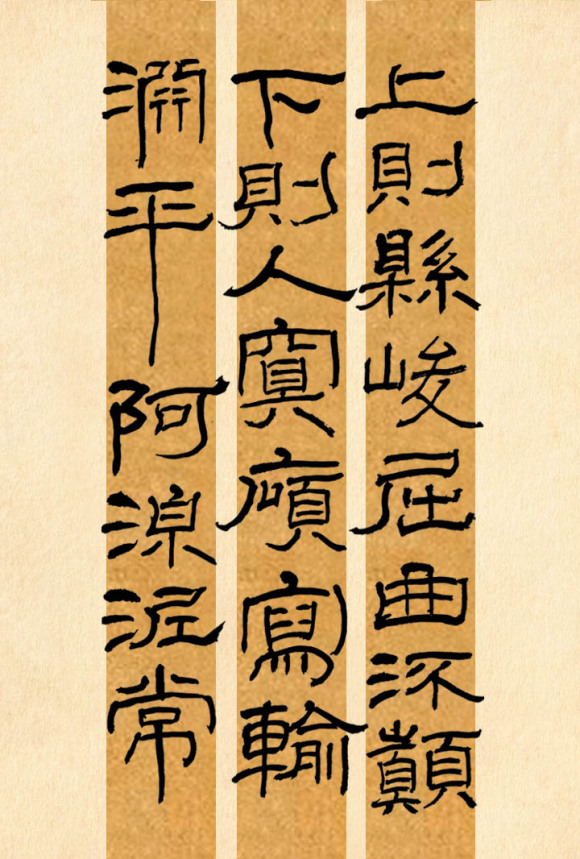 上則縣峻屈曲流顛
下則入冥廎寫輸
淵平阿湶泥常